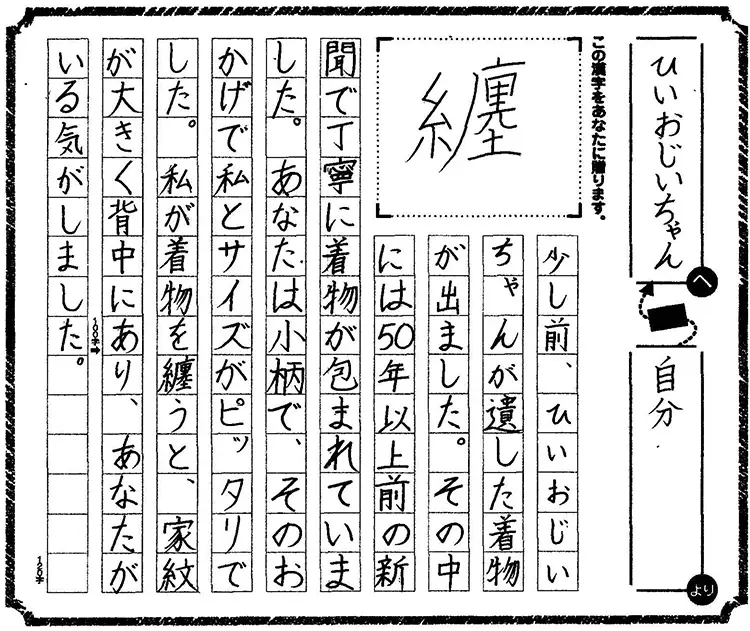 ひいおじいちゃん
へ
自分
より
この漢字をあなたに贈ります。
纏
少し前、ひいおじい
ちゃんが遺した着物
が出ました。その中
には50年以上前の新
聞で丁寧に着物が包まれていま
した。あなたは小柄で、そのお
かげで私とサイズがピッタリで
した。私が着物を纏うと、家紋
が大きく背中にあり、あなたが
100字➡
いる気がしました。
120字